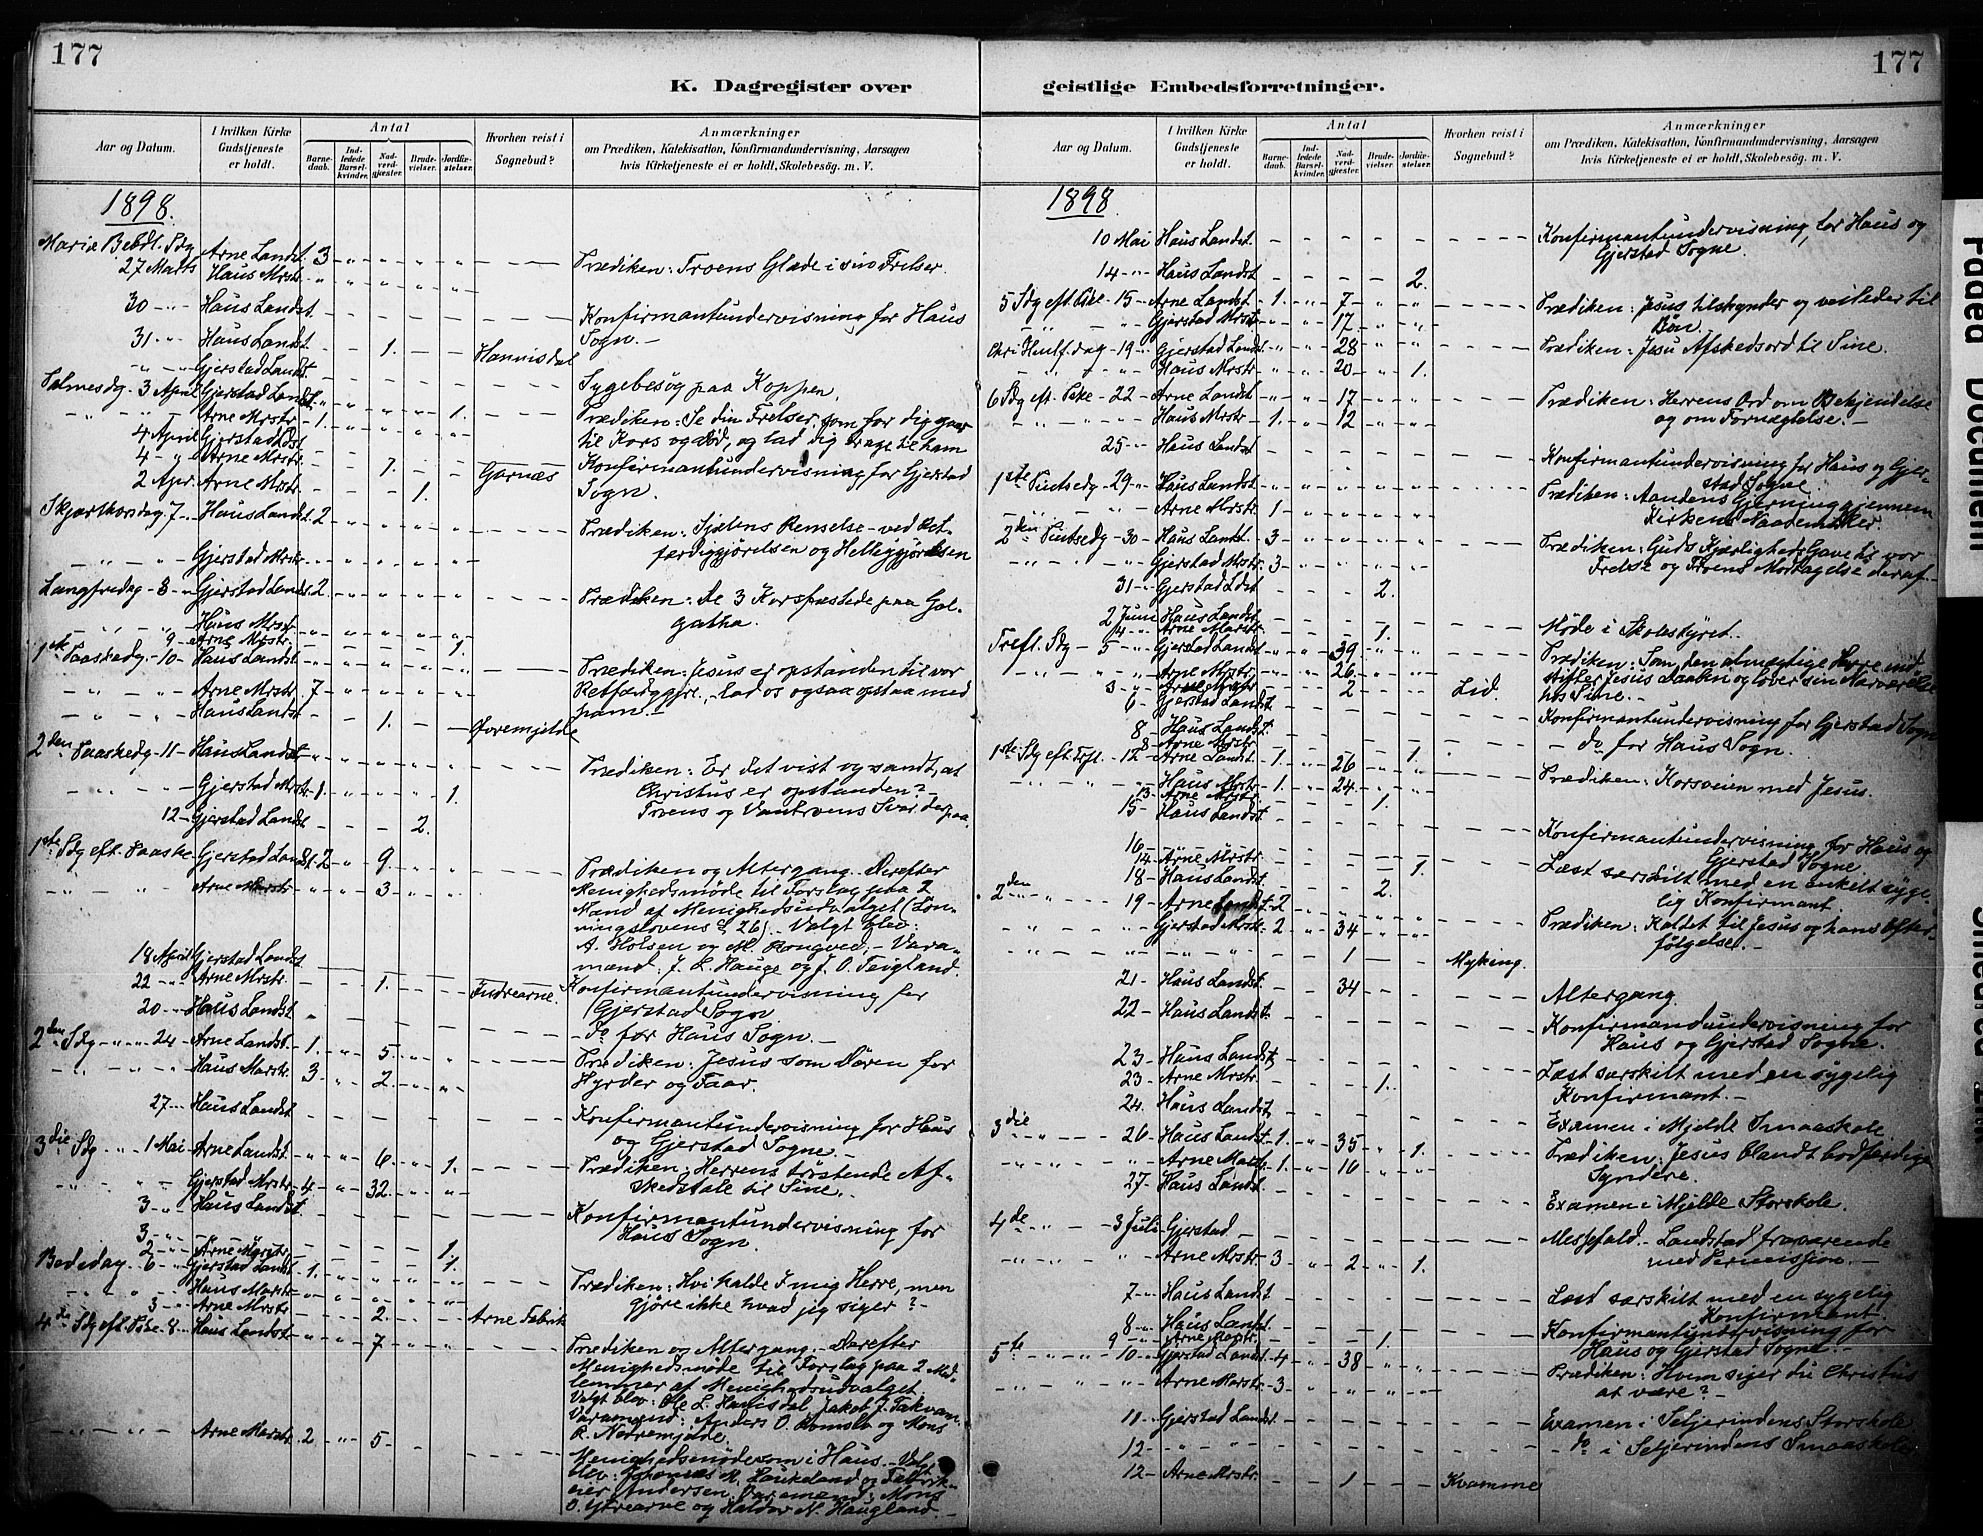 177
K. Dagregister over
Aar og Datum.
I hvilken Kirke Gudstjeneste er holdt.
Antal
Barnedaab.
Indledede Barselkvinder.
Nadverdgjæster.
Brudevielser.
Jordfæstelser.
Hvorhen reist i Sognebud?
Anmærkninger
om Prædiken, Katekisation, Konfirmandundervisning, Aarsagen
hvis Kirketjeneste ei er holdt, Skolebesög. m. V.
1898.
Mariæ Bebdl. Sdg Arne Landst. 3 Prædiken: Troens Glæde i sin Frelser.
27 Marts Haus Mrstr.
30 Haus Landst. Konfirmantundervisning for Haus
Sogn.
31 Haus Landst. 1. Hannisdal
Gjerstad Landst. Sygebesög paa Koppen.
Palmesdg. 3 April Gjerstad Landst. 1. Prædiken: Se din Frelser, som for dig gaar
Arne Mrstr. 1. til Kors og Död, og lad dig drage til ham
4 April Gjerstad Ldst. Konfirmantundervisning for Gjerstad
Sogn.
4 Arne Mrstr. 1. Garnæs
2 Apr. Arne Mrstr. 1.
Skjærthorsdag 7 Haus Landst. 2 Prædiken: Sjælens Renselse ved Ret-
Gjerstad Mrstr. færdiggjörelsen og Helliggjörelsen
Langfredag 8 Gjerstad Landst. 2. Prædiken: De 3 Korsfæstede paa Gol-
gatha.
Haus Mrst.
9 Arne Mrstr. 1.
1ste Paaskedg. 10 Haus Landst. Prædiken: Jesus er opstanden til vor
Arne Mrstr. 7 Retfærdggjrl., lad os ogsaa opstaa med
ham.
Haus Landst. 1. Hovemjelde
2den Paaskedg 11 Haus Landst. Prædiken: Er det vist og sandt, at
Gjerstad Mrstr. 1. 1. Christus er opstanden?
Troens og Vantroens Svar derpaa.
12 Gjerstad Landst. 2.
1ste Sdg eft. Paaske Gjerstad Landst. 2 9 Prædiken og Altergang. Derefter
Arne Marstr. 3 Menighedsmöde til Forslag paa 2
Mænd af Menighedsudvalget (Löningslovens § 26). Valgt blev:
A. Holsen og M. Rongved. Vara-
mænd: J. L. Hauge og J. O. Teigland.
18 April Gjerstad Landst. Konfirmantundervisning for
Gjerstad Sogn
22 Arne Mrstr. 1. Indrearne.
20 Haus Landst. do for Haus Sogn.
2den Sdg 24 Arne Landst. 1. 5. Prædiken: Jesus som Dören for
Haus Marstr. 3 2. Hyrder og Faar.
27 Haus Landst Konfirmantundervisning for Haus
og Gjerstad Sogne.
3die Sdg 1 Mai Arne Landst. 6. 1. Prædiken: Herrens tröstende Af-
Gjerstad Mrstr. 4 32. skedstale til Sine.
3 Haus Landst. Konfirmantundervisning for
Haus Sogn.
3 1.
2 Arne Marstr. 1.
Bededag 6 Gjerstad Landst. 1. Prædiken: Hvi kalde I mig Herre, men
Haus Marstr. gjöre ikke hvad jeg siger?
3 Arne Mrstr. 2. Arne Fabrik
4de Sdg eft. Pske 8 Haus Landst. 7 Prædiken og Altergang. Derefter
Menighedsmöde til Forslag paa 2 Med-
lemmer af Menighedsudvalget.
Valgt blev: Ole L. Hanisdal, Jakob J. Takvam.
Varamænd: Anders O. Romslo og Mons
R. Nedremjelde.
Arne Marstr. 2 5 Menighedsmöde som i Haus. Valgt
blev: Johannes M. Haukeland og Fabrik-
eier Andersen. Varamænd: Mons
O. Ytrearne og Haldor N. Haugland.
177
geistlige Embedsforretninger.
Aar og Datum.
I hvilken Kirke Gudstjeneste er holdt.
Antal
Barnedaab.
Indledede Barselkvinder.
Nadverdgjæster.
Brudevielser.
Jordfæstelser.
Hvorhen reist i Sognebud?
Anmærkninger
om Prædiken, Katekisation, Konfirmandundervisning, Aarsagen
hvis Kirketjeneste ei er holdt, Skolebesög m. V.
1898
10 Mai Haus Landst. Konfirmantundervisning for Haus og
Gjerstad Sogne.
14 Haus Landst 2.
5 Sdg eft. Pske 15 Arne Landst 1. 7 Prædiken: Jesus tilskynder og veileder til
Bön.
Gjerstad Mrstr 17
Chri Himlf. dag 19 Gjerstad Landst. 28 Prædiken: Jesu Afskedsord til Sine.
Haus Mrstr. 20 1.
6 Sdg eft. Pske 22 Arne Landst 17 Prædiken: Herrens Ord om Bekjendelse
Haus Mrstr. 1. 12 og om Fornægtelse.
25 Haus Landst Konfirmantundervisning for Haus og Gjer-
stad Sogne
1ste Pintsedg 29 Haus Landst. Prædiken: Aandens Gjerning gjennem
Arne Mrstr. 1 Kirkens Naademidler.
2den Pintsedg 30 Haus Landst. 3 Prædiken: Guds Kjærligheds Gave til vor
Gjerstad Mrstr. 3 Frelse og Troens Modtagelse deraf.
31 Gjerstad Ldst 2.
2 Juni Haus Landst Möde i Skolestyret.
4 Arne Marstr. 1.
Trefl. Sdg 5 Gjerstad Landst 39 Prædiken: Som den almægtige Herre ind-
Arne Mrstr. 26 stifter Jesus Daaben og lover sin Nærværelse
hos Sine.
3 Arne Mrstr 2 Lid.
6 Gjerstad Landst Konfirmantundervisning for Gjerstad Sogn
8 Haus Landst. do for Haus Sogn.
8 Arne Mrstr 1.
1ste Sdg eft. Trfl. 12 Arne Landst 1. 26 Prædiken: Korsveien med Jesus.
Haus Mrstr 1. 24
13 Arne Mrstr 1.
15 Haus Landst Konfirmantundervisning for Haus og
Gjerstad Sogne
16 Læst særskilt med en enkelt syge-
lig Konfirmant.
14 Arne Mrstr. 1.
18 Haus Landst. 2.
2den 19 Arne Landst 2 Prædiken: Kaldet til Jesus og hans Efter-
Gjerstad Mrstr. 2 34 fölgelse.
1 Myking.
21 Haus Landst. 34 Altergang.
22 Haus Landst. Konfirmandundervisning for
Haus og Gjerstad Sogne.
23 Haus Landst. Læst særskilt med en sygelig
Konfirmant.
23 Arne Mrstr. 1.
24 Haus Landst. Examen i Mjelde Smaaskole.
3die 26 Haus Landst. 1. 35 1. Prædiken: Jesus blandt bodfærdige
Arne Mrstr. 1. 10 Syndere.
27 Haus Landst. Examen i Mjelde Storskole.
4de 3 Juli Gjerstad Messefald. Landstad fraværende
med Permission.
Arne Mrstr 3 2 1.
7 Haus Landst Læst særskilt med en sygelig
Konfirmant
8 Haus Landst. Konfirmantundervisning for
Haus og Gjerstad Sogne.
9 Arne Marstr. 1.
5te 10 Gjerstad Landst 4 38 Prædiken: Hvem siger du Christus
Arne Marstr. 3 at være?
11 Gjerstad Landst. Examen i Seljerindens Storskole
12 do i Seljerindens Smaaskole
12 Arne Mrstr. 1 Kvamme
Faded Document